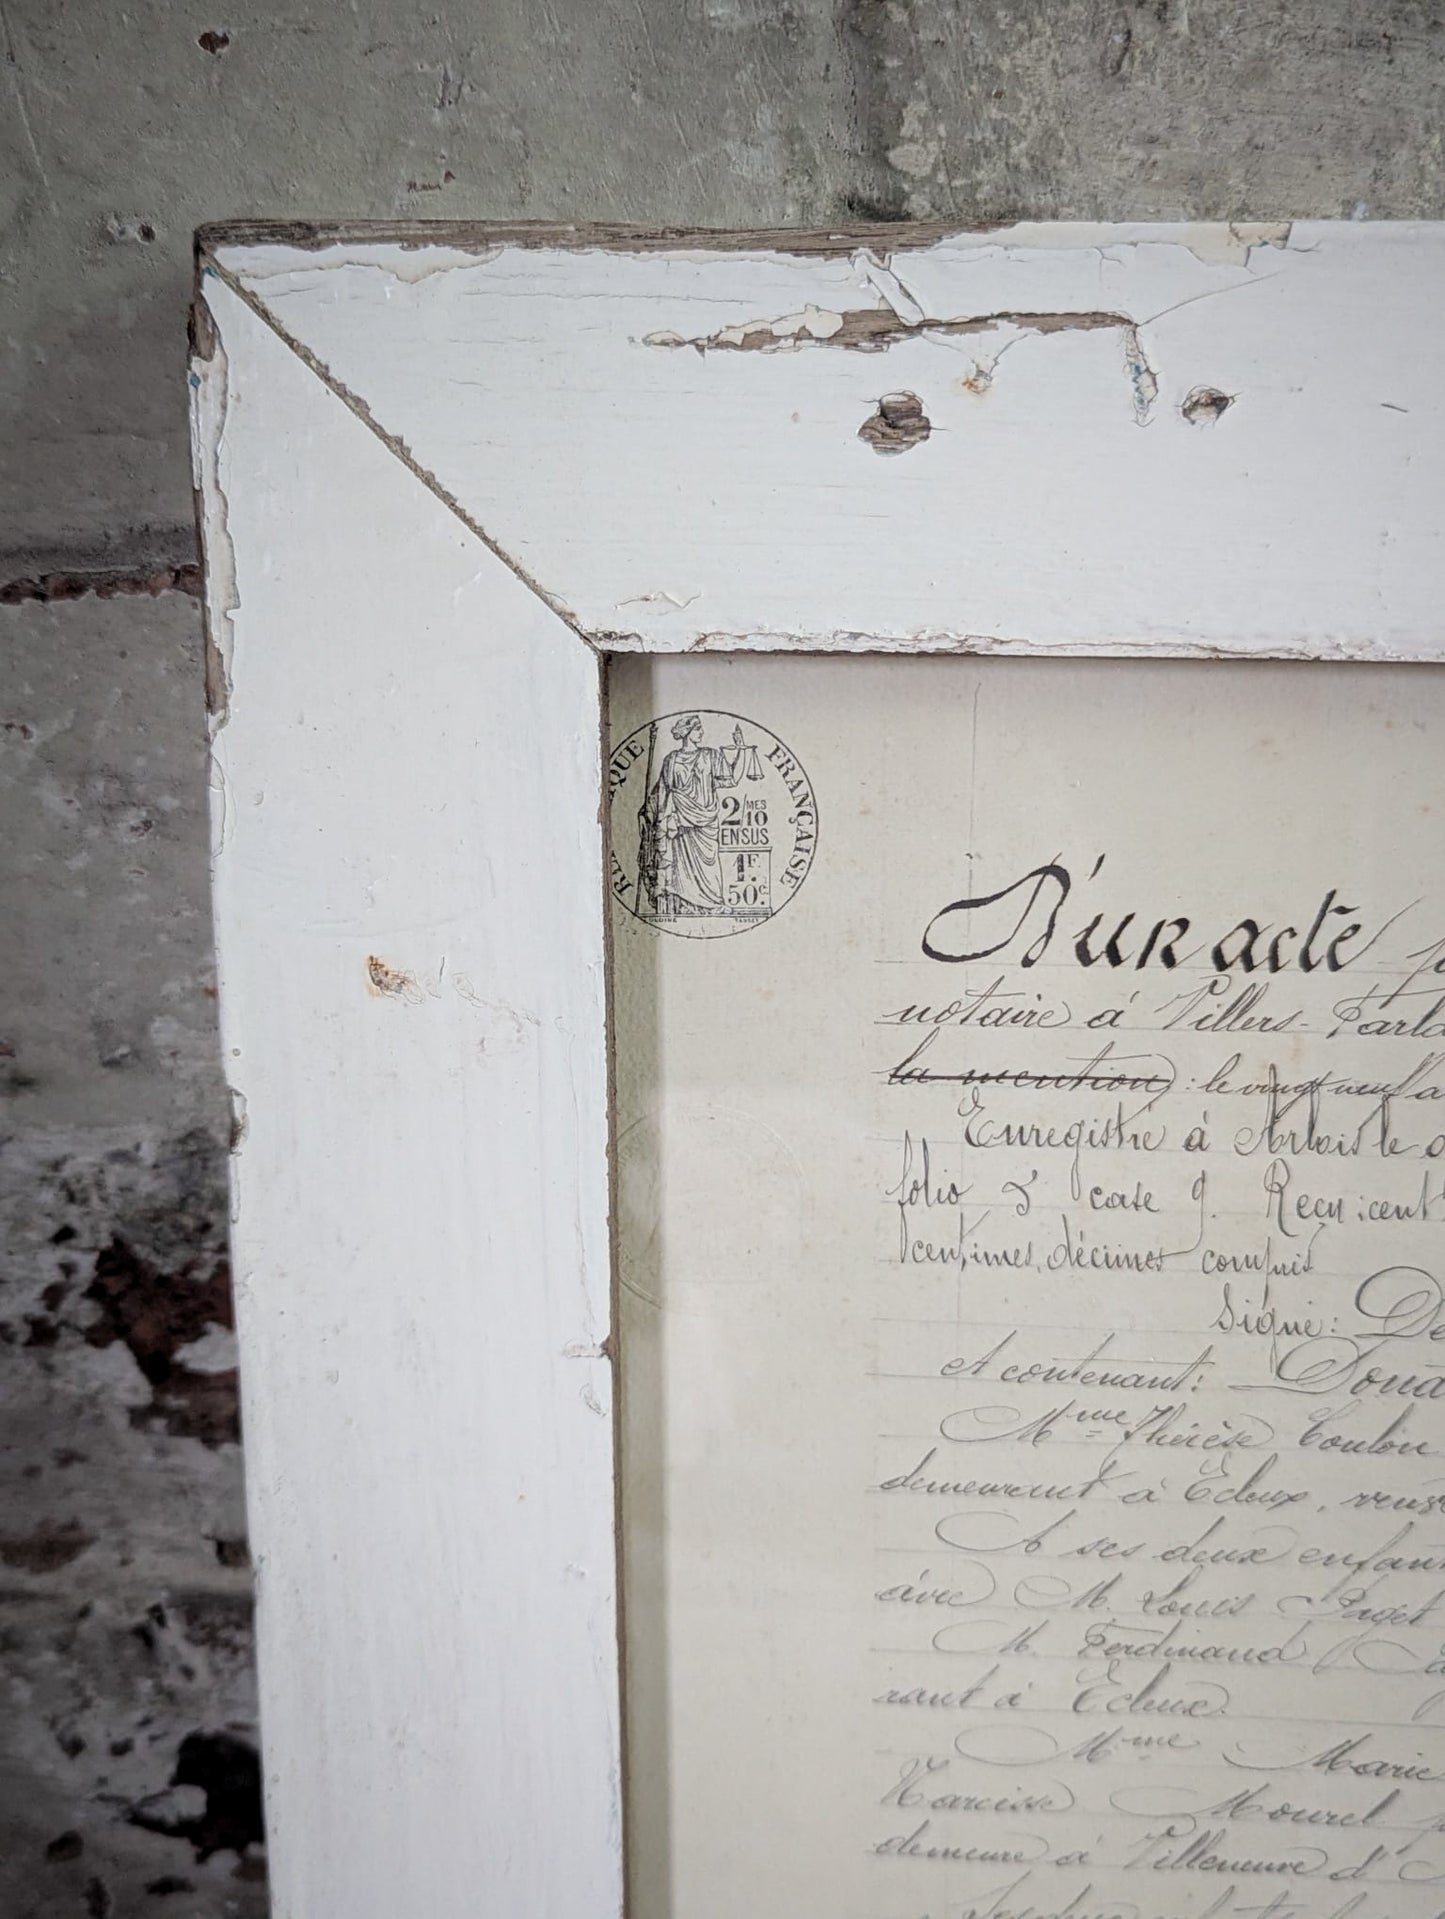 RÉPUBLIQUE FRANÇAISE
2/10MES
EN SUS
1F.
50c.
OUDINÉ TASSET
D'un acte
notaire à Villers-Farla
la mention : le vingt neuf a
Enregistré à Arbois le
folio 5 case 9. Reçu : cent
centimes, décimes compris
Signé : De
et contenant : Dona
Mme Thérèse Coulon
demeurant à Ecleux,
A ses deux enfan
avec M. Louis Paget
M. Ferdinand
rant à Ecleux.
Mme Marie
Narcisse Mourel
demeure à Villeneuve d'